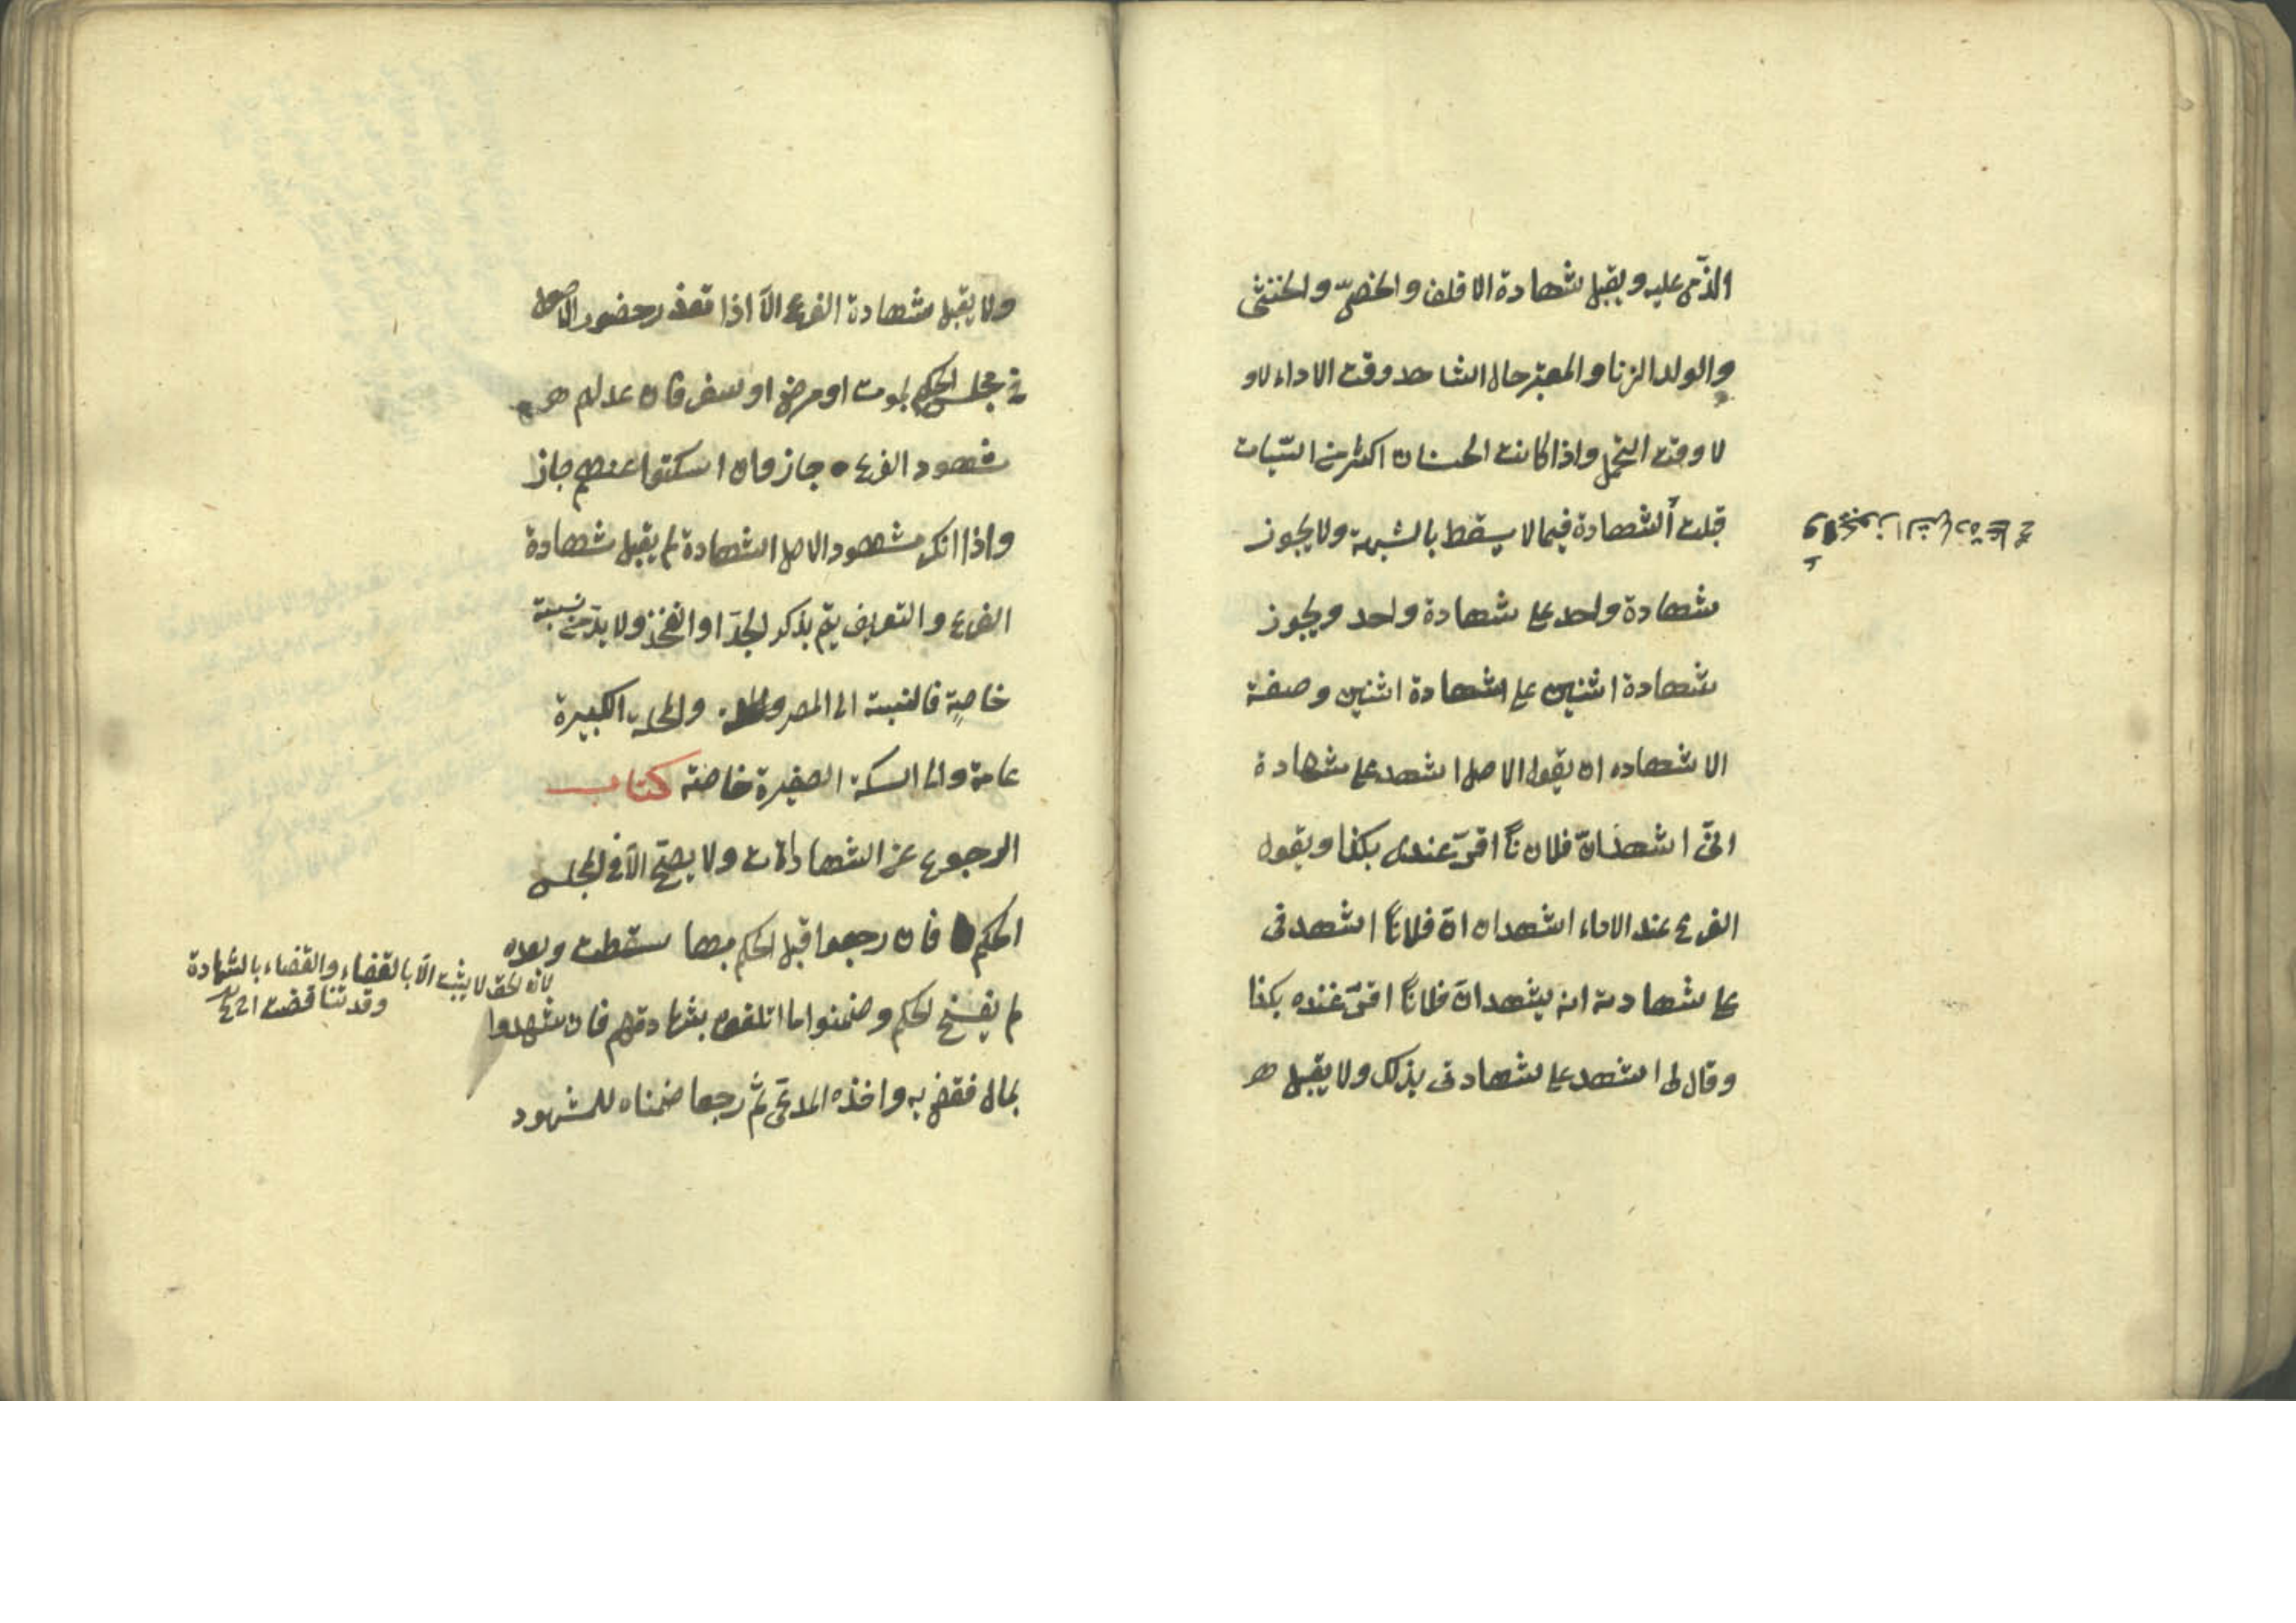 الذمي عليه ويقبل شهادة الاقلف والخصيّ والخنثى
والولد الزنا والمعتبر حال الشاهد وقت الاداء لاو
لا وقت التحمل واذا كانت الحسنات اكثر من السّيات
قبلت الشهادة فيما لا يسقط بالشبهة ولا يجوز
شهادة واحد على شهادة واحد ويجوز
شهادة اثنين على شهادة اثنين وصفة
الاشهاد ان يقول الاصل اشهد على شهادة
انّى اشهد انّ فلان ناً اقرّ عندى بكذا ويقول
الفرع عند الاداء اشهد ان انّ فلاناً اشهدنى
على شهادته انه يشهد انّ فلاناً اقرّ عنده بكذا
وقال لى اشهد على شهادتى بذلك ولا يقبل
ويجوز الشهادة على
ولا يقبل شهادة الفرع الّا اذا تعذر حضور الاصل
فى مجلس الحكم لموت او مرض او سفر فان عدلهم
شهود الفرع جاز وان اسكتوا عنهم جاز
واذا انكر شهود الاصل الشهادة لم يقبل شهادة
الفرع والتعريف يتم بذكر الجدّ او الفخذ ولا بدّ من نسبة
خاصة فالنسبة الى المصر والمحلة الكبيرة
عامة والى السكة الصغيرة خاصة كتاب
الرجوع عن الشهادات ولا يصحّ الّا فى المجلس
الحكم فان رجعوا قبل الحكم بها سقطت وبعده
لم يفسخ الحكم وضمنوا ما اتلفوه بشهادتهم فان شهدوا
بمال فقضى به واخذه المدعى ثم رجعا ضمناه للمشهود
لانّ الحق لا يثبت الّا بالقضاء والقضاء بالشهادة
وقد تناقضت